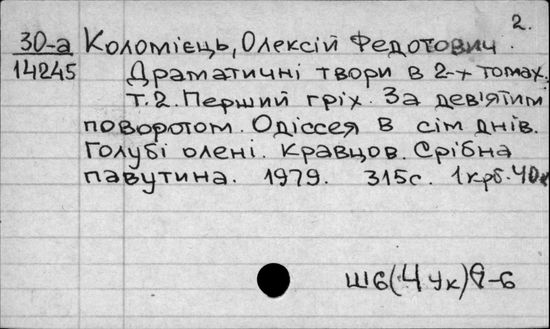 2.
30-а Коломієць, Олексій Федотович.
14245 Драматичні твори в 2-х томах.
т.2. Перший гріх. За дев'ятим
поворотом. Одіссея в сім днів.
Голубі олені. Кравцов. Срібна
павутина. 1979. 315с. 1крб. 40к
Ш6(4Ук)9-6